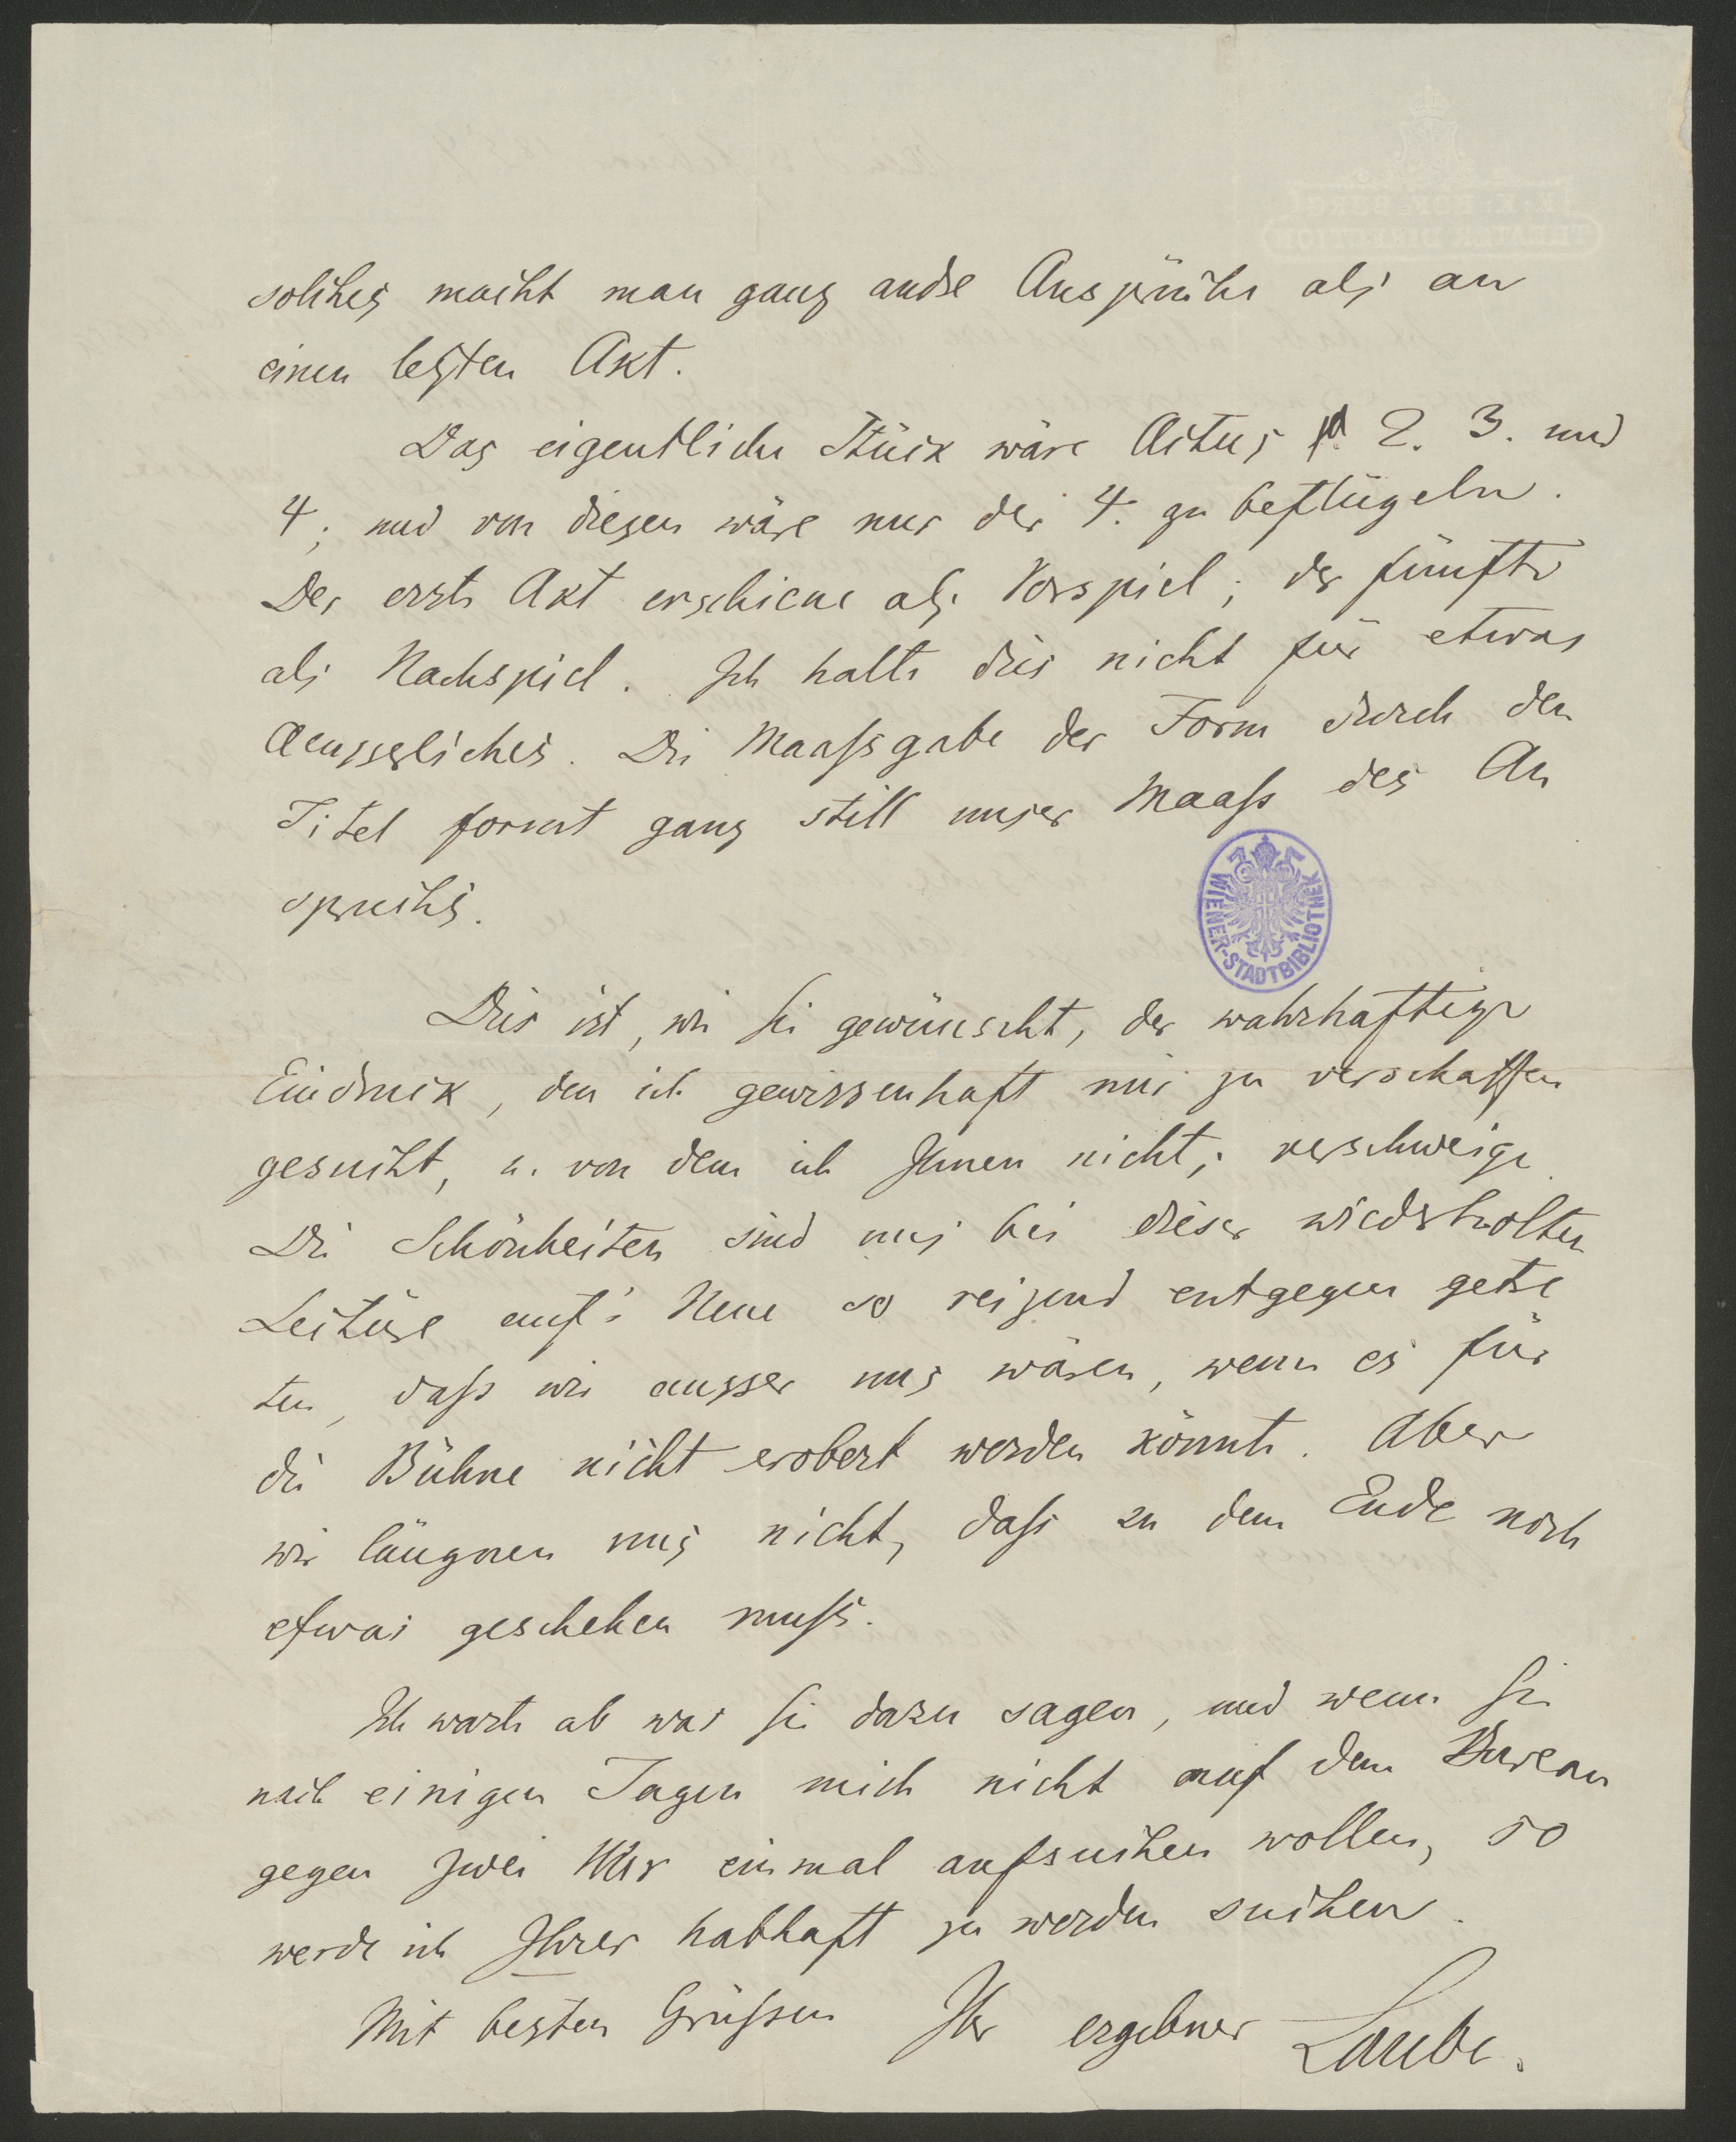 solches macht man ganz andre Ansprüche als an
einen letzten Akt.
Das eigentliche Stück wäre Actus 2. 3. und
4; und von diesen wäre nur der 4. zu beflügeln.
Der erste Akt erschiene als Vorspiel; der fünfte
als Nachspiel. Ich halte dies nicht für etwas
Aeusserliches. Die Maaßgabe der Form durch den
Titel formt ganz still unser Maaß des An
spruchs.
WIENER-STADTBIBLIOTHEK
Dies ist, wie Sie gewünscht, der wahrhaftige
Eindruck, den ich gewissenhaft mir zu verschaffen
gesucht, u. von dem ich Ihnen nichts verschweige.
Die Schönheiten sind uns bei dieser wiederholten
Lectüre auf's Neue so reizend entgegen getre
ten, daß wir ausser uns wären, wenn es für
die Bühne nicht erobert werden könnte. Aber
wir läugnen uns nicht, daß zu dem Ende noch
etwas geschehen muß.
Ich warte ab was Sie dazu sagen, und wenn Sie
nach einigen Tagen mich nicht auf dem Bureau
gegen zwei Uhr einmal aufsuchen wollen, so
werde ich Ihrer habhaft zu werden suchen.
Mit besten Grüßen Ihr ergebner Laube.